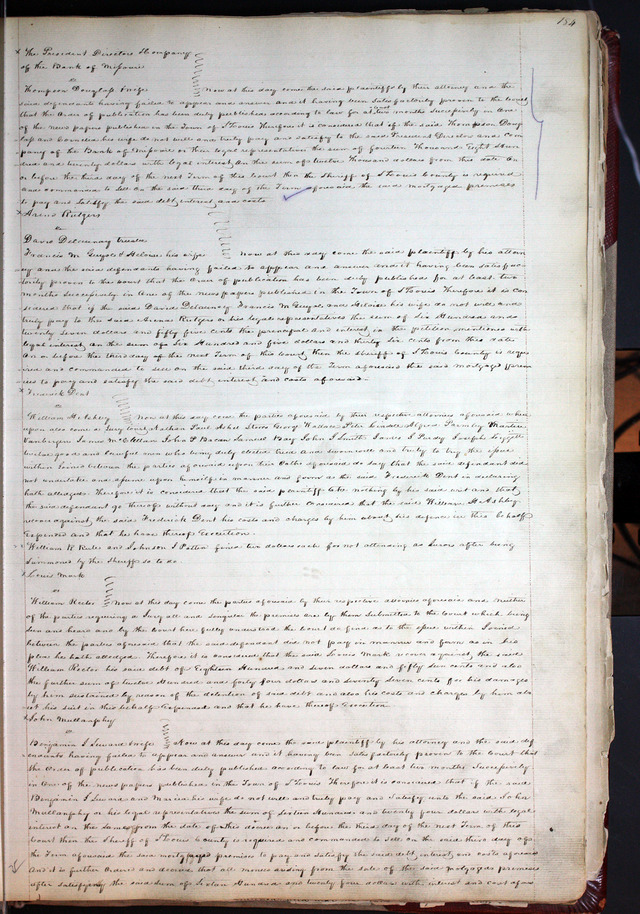 184
The President Directors & Company
of the Bank of Missouri
vs
Thompson Douglass & wife Now at this day come the said plaintiffs by their attorney and the
said defendants having failed to appear and answer and it having been satisfactorily proven to the court
that the order of publication has been duly published according to law for at least two months successively in one
of the news papers published in the Town of St Louis Therefore it is considered that if the said Thompson Doug
lass and his wife do not well and truly pay and satisfy to the said President Directors and Com
pany of the Bank of Missouri or their legal representatives the sum of fourteen Thousand Eight Hun
dred and twenty dollars with legal interest on the sum of twelve Thousand dollars from this date on
or before the third day of the next Term of this court then the Sheriff of St Louis County is required
and commanded to sell on the said third day of the Term aforesaid the said mortgaged premises
to pay and satisfy the said debt, interest and costs
Arend Rutgers
vs
David Delaunay trustee
Francis M Guyol & his wife Now at this day come the said plaintiff by his attor
ney and the said defendants having failed to appear and answer and it having been satisfac
torily proven to the court that the order of publication has been duly published for at least two
months successively in one of the news papers published in the Town of St Louis Therefore it is con
sidered that if the said David Delaunay Francis M Guyol and his wife do not well and
truly pay to the said Arend Rutgers or his legal representatives the sum of Six Hundred and
twenty seven dollars and fifty five cents the principal and interest in the petition mentioned with
legal interest on the sum of Six Hundred and five dollars and thirty Six cents from this date
on or before the third day of the next Term of this court, then the sheriff of St Louis County is requi
red and commanded to sell on the said third day of the Term aforesaid the said mortgaged prem
ises to pay and satisfy the said debt, interest, and costs aforesaid
Frederick Dent
vs
William H Ashley Now at this day come the parties aforesaid by their respective attorneys aforesaid where
upon also come a Jury to wit, Paul Stiles George Wallace Peter Alfred
James McClellan John P Bacon Samuel Bay John Smith James Purdy Joseph
twelve good and lawful men who being duly elected tried and sworn well and truly to try the issue
within Joined between the parties aforesaid upon their Oaths aforesaid do say that the said defendant did
not undertake and assume upon himself in manner and form as the said Frederick Dent in declaring
hath alledged. Therefore it is considered that the said plaintiff take nothing by his said writ and that
the said defendant go thereof without day and it is further considered that the said William H Ashley
recover against the said Frederick Dent his costs and charges by him about his defence in this behalf
expended and that he have thereof execution
William R and Johnson fined two dollars each for not attending as Jurors after being
summoned by the Sheriff so to do
Louis Mark
vs
William Rector Now at this day come the parties aforesaid by their respective attornies aforesaid and neither
of the parties requiring a Jury all and singular the premises are by them submitted to the court which being
seen and heard and by the court here fully understood the court do find as to the issue within Joined
between the parties aforesaid that the said defendant did not pay in manner and form as in his
plea he hath alledged. Therefore it is considered that the said Louis Mark recover against, the said
William Rector his said debt of Eighteen Hundred and seven dollars and fifty six cents and also
the further sum of twelve Hundred and forty four dollars and seventy seven cents for his damages
by him sustained by reason of the detention of said debt and also his costs and charges by him abo
ut his suit in this behalf expended and that he have thereof Execution
John Mullanphy
vs
Benjamin Seward & wife Now at this day come the said plaintiff by his attorney and the said def
endants having failed to appear and answer and it having been satisfactorily proven to the court that
the order of publication has been duly published according to law for at least two months successively
in one of the news papers published in the Town of St Louis Therefore it is considered that if the said
Benjamin Seward and Maria his wife do not well and truly pay and satisfy unto the said John
Mullanphy or his legal representatives the sum of sixteen Hundred and twenty four dollars with legal
interest on the same from the date of the on or before the third day of the next Term of this
court then the Sheriff of St Louis county is required and commanded to sell on the said third day of
the Term aforesaid the said mortgaged premises to pay and satisfy the said debt, interest, and costs aforesaid
And it is further ordered and decreed that all monies arising from the sale of the said mortgaged premises
after satisfying the said sum of sixteen Hundred and twenty four dollars with interest and cost afore